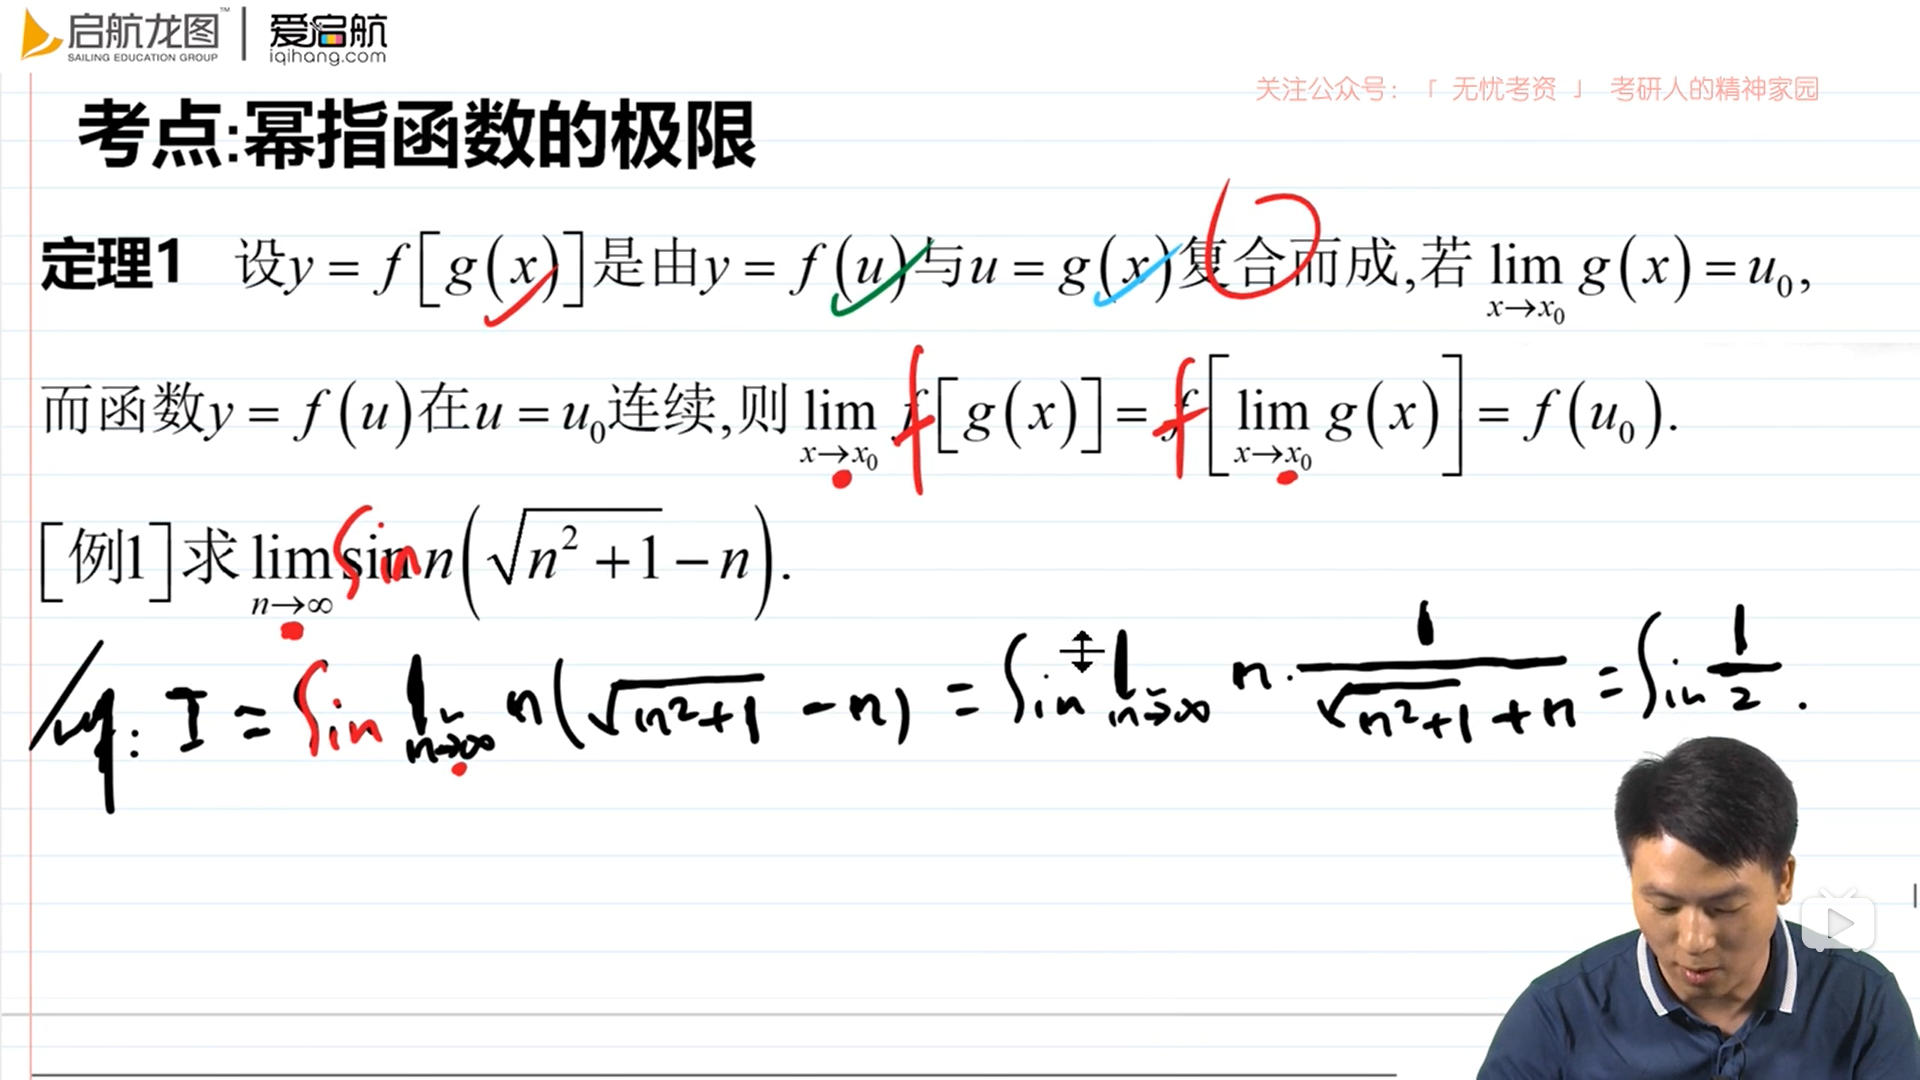 启航龙图™ 爱启航
SAILING EDUCATION GROUP iqihang.com
关注公众号：「 无忧考资 」 考研人的精神家园
考点:幂指函数的极限
定理1 设y = f[g(x)]是由y = f(u)与u = g(x)复合而成,若 lim_{x→x₀} g(x) = u₀,
而函数y = f(u)在u = u₀连续,则 lim_{x→x₀} f[g(x)] = f[lim_{x→x₀} g(x)] = f(u₀).
[例1]求 lim_{n→∞} sin n(√(n²+1) − n).
: I = sin lim_{n→∞} n(√(n²+1) − n) = sin lim_{n→∞} n · 1/(√(n²+1) + n) = sin 1/2 .